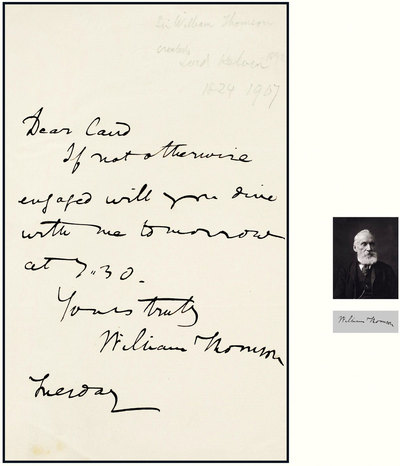 Sir William Thomson
created
Lord Kelvin
1824 1907
Dear Caird
If not otherwise
engaged will you dine
with me tomorrow
at 7.30.
Yours truly
William Thomson
Tuesday
William Thomson